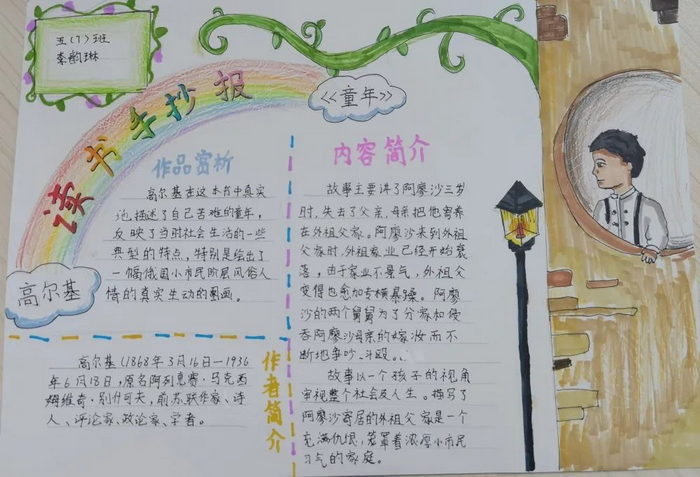 五(7)班
李韵琳
读书手抄报
《童年》
作品赏析
高尔基在这本书中真实
地描述了自己苦难的童年，
反映了当时社会生活的一些
典型的特点，特别是绘出了
一幅俄国小市民阶层风俗人
情的真实生动的画画。
高尔基
高尔基(1868年3月16日—1936
年6月18日，原名阿列克赛·马克西
姆维奇·别什可夫，前苏联作家、诗
人、评论家、政论家、学者。
作者简介
内容简介
故事主要讲了阿廖沙三岁
时，失去了父亲，母亲把他寄养
在外祖父家。阿廖沙来到外祖
父家时，外祖家业已经开始衰
落，由于家业不景气，外祖父
变得也愈加专横暴躁。阿廖
沙的两个舅舅为了分家和侵
吞阿廖沙母亲的嫁妆而不
断地争吵、斗殴。
故事以一个孩子的视角
审视整个社会及人生。描写了
阿廖沙寄居的外祖父家是一个
充满仇恨，笼罩着浓厚小市民
习气的家庭。